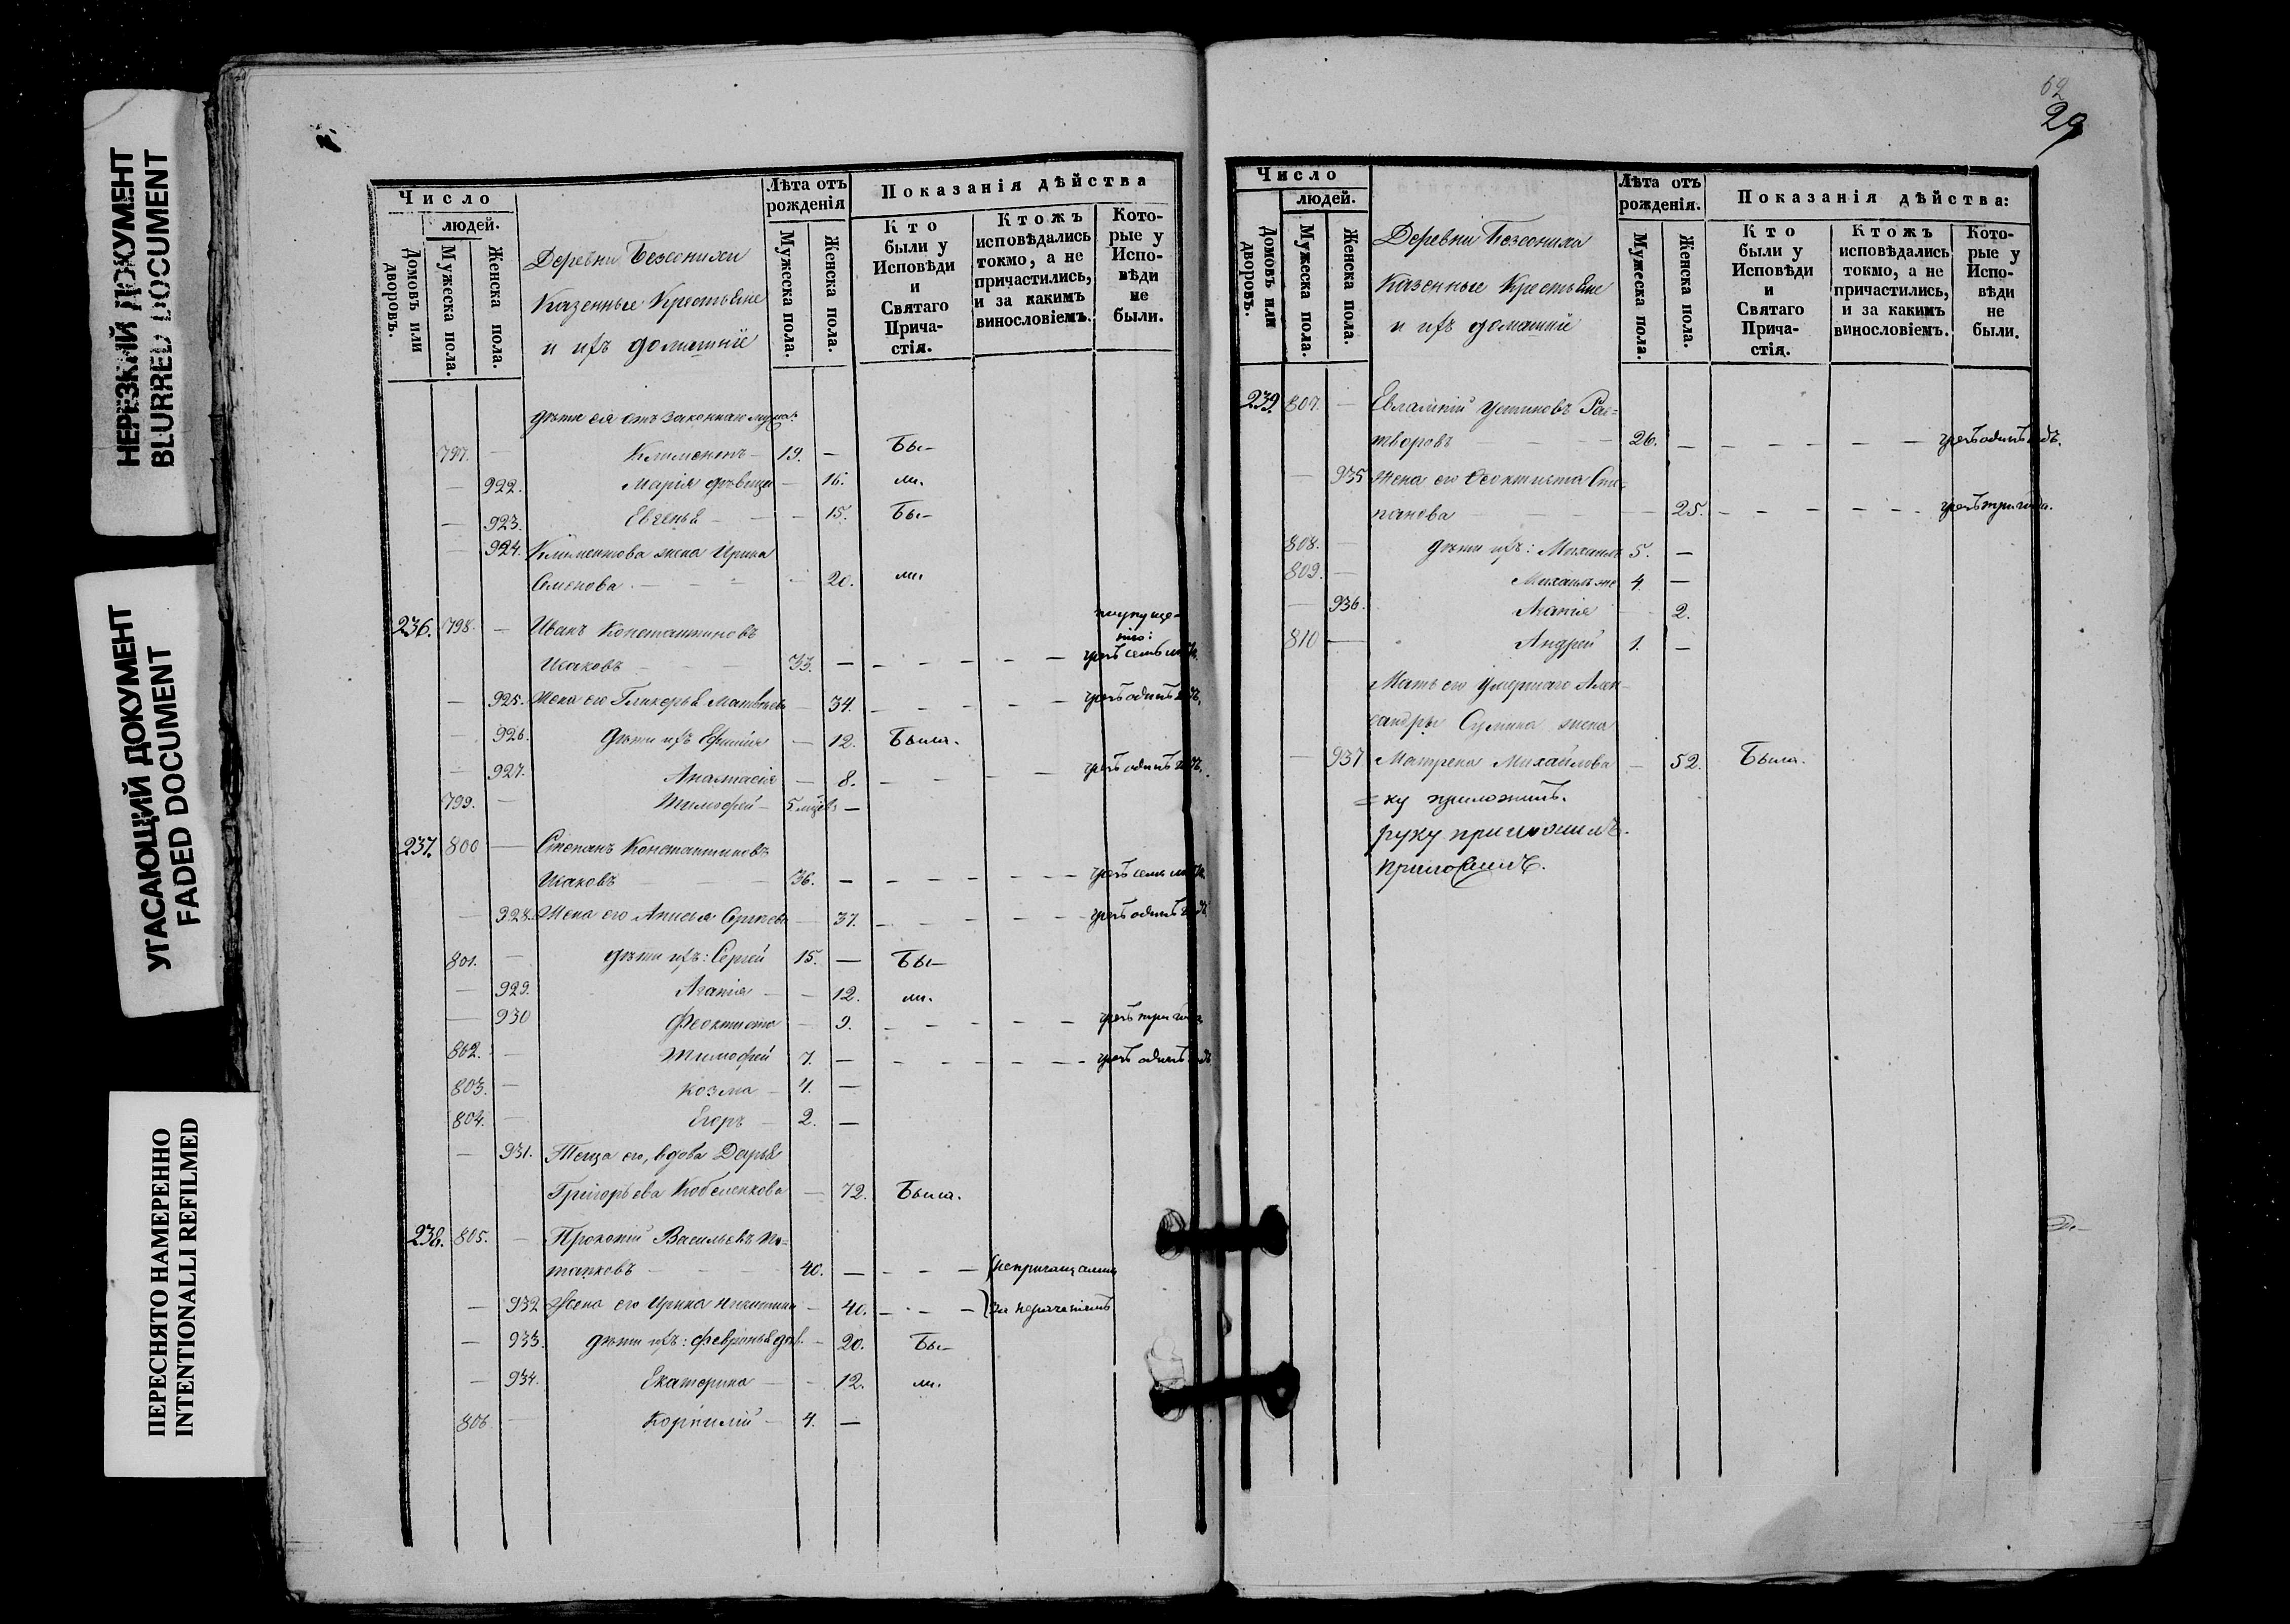 НЕРЕЗКИЙ ДОКУМЕНТ
BLURRED DOCUMENT
УГАСАЮЩИЙ ДОКУМЕНТ
FADED DOCUMENT
ПЕРЕСНЯТО НАМЕРЕННО
INTENTIONALLI REFILMED
Число
людей.
Домовъ или дворовъ.
Мужеска пола.
Женска пола.
Деревни
Казенные Крестьяне
и ихъ домашніе
Лѣта отъ рожденія
Мужеска пола.
Женска пола.
Показанія дѣйства
Кто были у Исповѣди и Святаго Прича-стія.
Ктожъ исповѣдались токмо, а не причастились, и за какимъ винословіемъ.
Кото-рые у Испо-вѣди не были.
дѣти ея отъ законнаго мужа:
797. — Климентъ — 19. — Бы-
— 922. Марія дѣвица — 16. ли.
— 923. Евгенья — 15. Бы-
— 924. Климентова жена Ирина
Семенова — 20. ли.
236. 798. — Иванъ Константиновъ
Исаковъ — 33. —
— 925. Жена его Гликерья Матвѣева — 34.
— 926. Дѣти ихъ — 12. Была.
— 927. Анастасія — 8.
799. — Тимофей — 5 —
237. 800 — Степанъ Константиновъ
Исаковъ — 36. —
— 928. Жена его Анисья Сергѣева — 37.
801. — дѣти ихъ: Сергей 15. — Бы-
— 929. Агапія — 12. ли.
— 930 Феоктиста — 9.
802. — Тимофей 7. —
803. — Козма — 4. —
804. — Егоръ — 2. —
— 931. Теща его, вдова Дарья
Григорьева Кобеленкова — 72. Была.
238. 805. — Прокопій Васильевъ По-
тапковъ — 40. — непричащались
— 932 Жена его Ирина Никитина — 40. — за нераченіемъ
— 933. дѣти ихъ: Февронья дѣв. — 20. Бы-
— 934. Екатерина — 12. ли.
806 — Корнилій — 4. —
62
29
Число
людей.
Домовъ или дворовъ.
Мужеска пола.
Женска пола.
Деревни
Казенные Крестьяне
и ихъ домашніе
Лѣта отъ рожденія.
Мужеска пола.
Женска пола.
Показанія дѣйства:
Кто были у Исповѣди и Святаго Прича-стія.
Ктожъ исповѣдались токмо, а не причастились, и за какимъ винословіемъ.
Кото-рые у Испо-вѣди не были.
239. 807. — Евлампій Устиновъ Рас-
творовъ — 26. —
— 935 Жена его Феоктиста Сте-
панова — 25.
808. — дѣти ихъ: Михаилъ 5. —
809. — Михаилъ же 4. —
— 936. Агапія — 2.
810 — Андрей 1. —
Мать его умершаго Алек-
сандры жена
— 937 Матрена Михайлова — 52. Была.
=ку приложилъ.
руку приложилъ.
приложилъ.